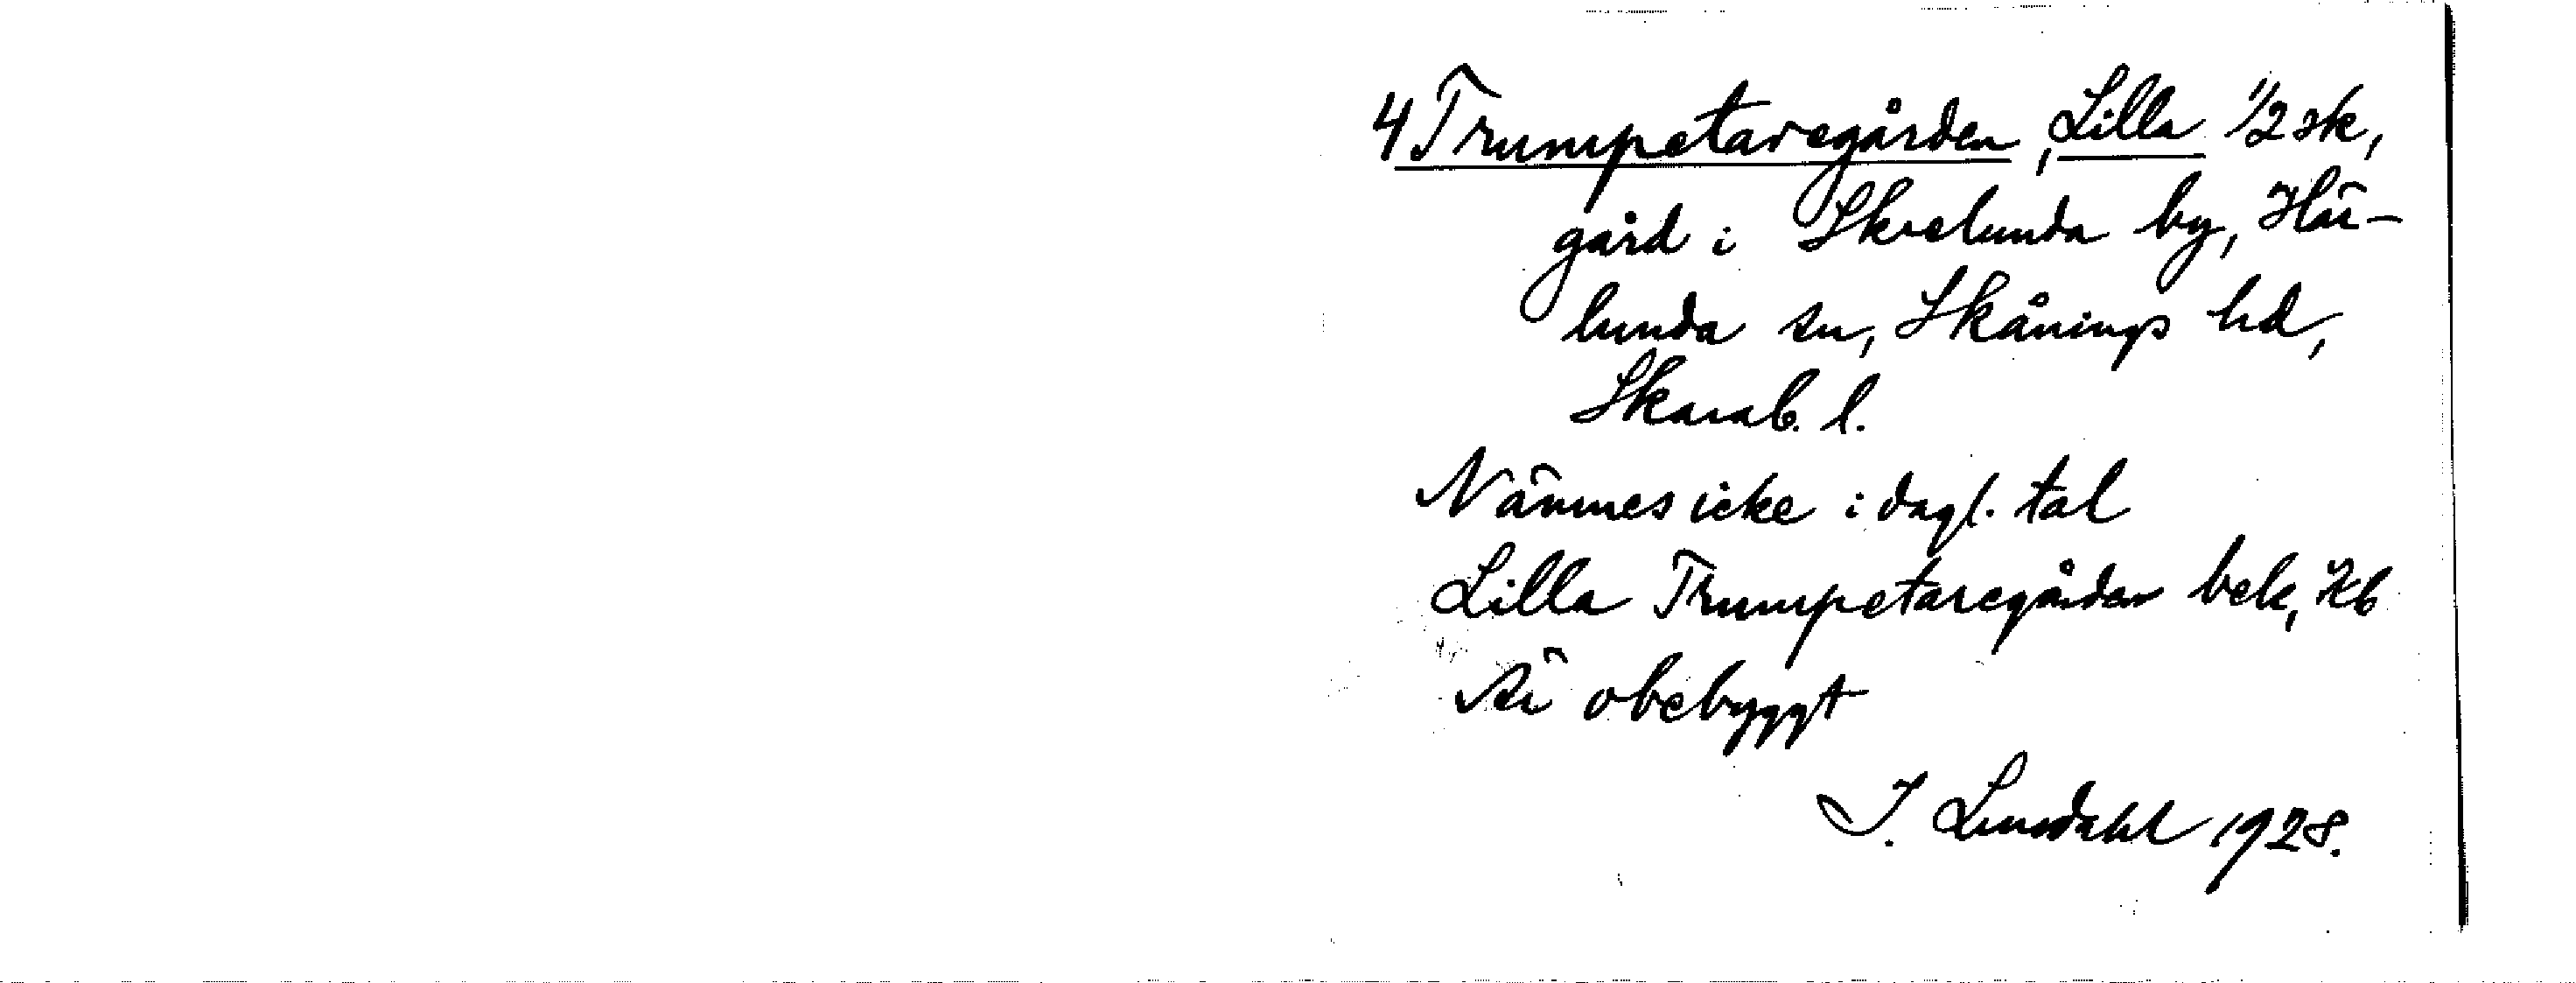 4 Trumpetaregården, Lilla 1/2 sk,
gård i Skrelunda by, Här-
lunda sn, Skånings hd,
Skarab. l.
Nämnes icke i dagl. tal
Lilla Trumpetaregården bek, Kb
Är obebyggt
J. Lundahl 1928.